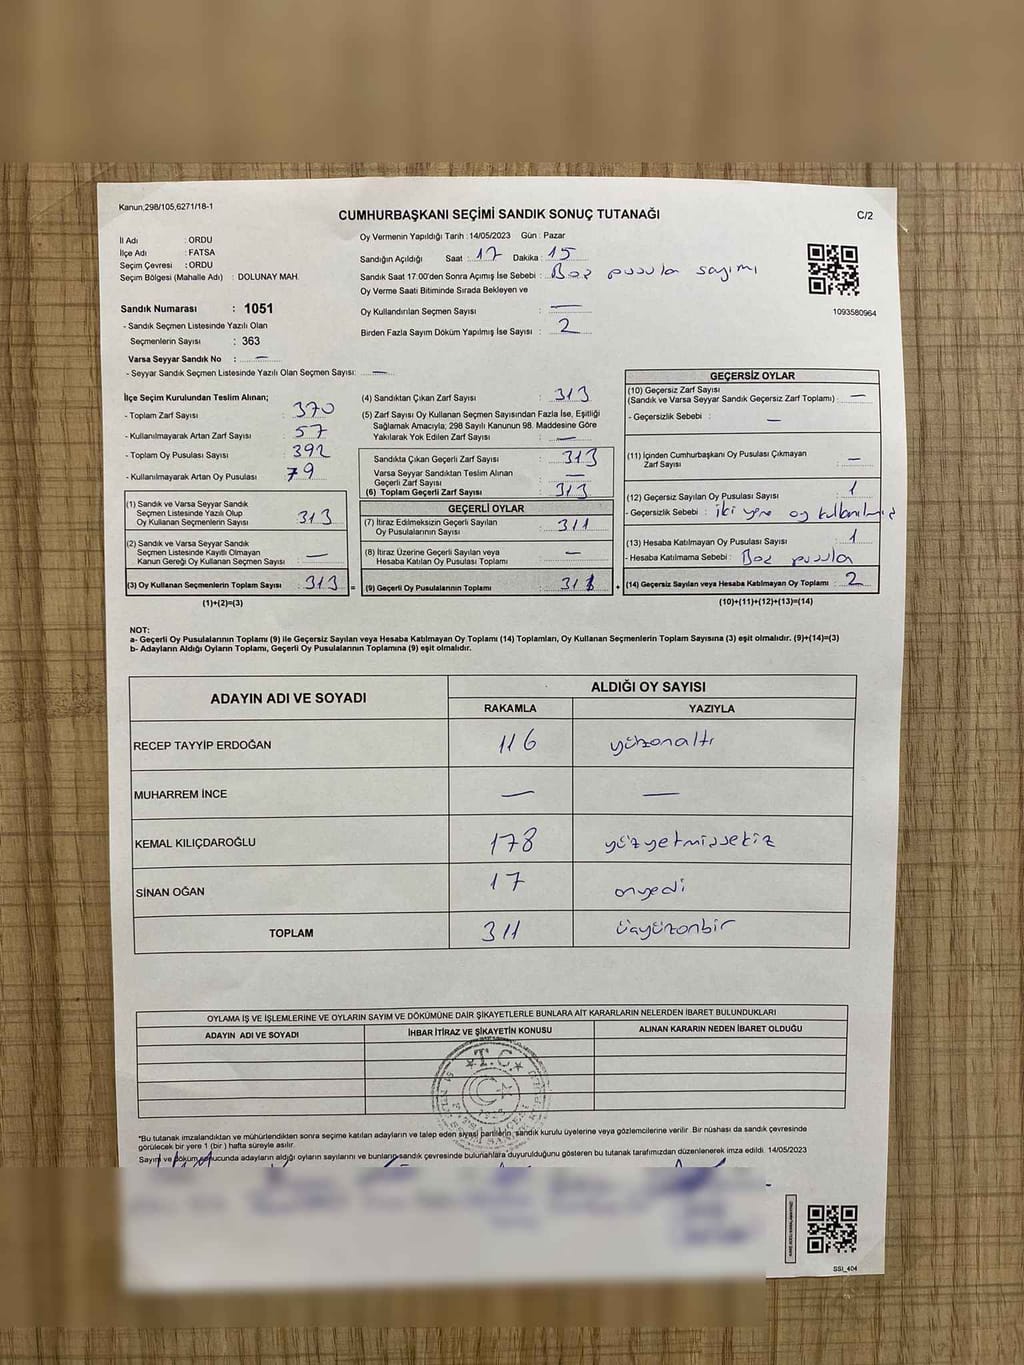 Kanun,298/105,6271/18-1
CUMHURBAŞKANI SEÇİMİ SANDIK SONUÇ TUTANAĞI
C/2
İl Adı : ORDU
İlçe Adı : FATSA
Seçim Çevresi : ORDU
Seçim Bölgesi (Mahalle Adı) : DOLUNAY MAH.
Sandık Numarası : 1051
- Sandık Seçmen Listesinde Yazılı Olan
Seçmenlerin Sayısı : 363
Varsa Seyyar Sandık No : —
- Seyyar Sandık Seçmen Listesinde Yazılı Olan Seçmen Sayısı: —
Oy Vermenin Yapıldığı Tarih : 14/05/2023 Gün : Pazar
Sandığın Açıldığı Saat : 17 Dakika : 15
Sandık Saat 17:00'den Sonra Açımış İse Sebebi : Boş pusula sayımı
Oy Verme Saati Bitiminde Sırada Bekleyen ve
Oy Kullandırılan Seçmen Sayısı : —
Birden Fazla Sayım Döküm Yapılmış İse Sayısı : 2
1093580964
İlçe Seçim Kurulundan Teslim Alınan;
- Toplam Zarf Sayısı : 370
- Kullanılmayarak Artan Zarf Sayısı : 57
- Toplam Oy Pusulası Sayısı : 392
- Kullanılmayarak Artan Oy Pusulası : 79
(1) Sandık ve Varsa Seyyar Sandık
Seçmen Listesinde Yazılı Olup
Oy Kullanan Seçmenlerin Sayısı : 313
(2) Sandık ve Varsa Seyyar Sandık
Seçmen Listesinde Kayıtlı Olmayan
Kanun Gereği Oy Kullanan Seçmen Sayısı : —
(3) Oy Kullanan Seçmenlerin Toplam Sayısı : 313 =
(1)+(2)=(3)
(4) Sandıktan Çıkan Zarf Sayısı : 313
(5) Zarf Sayısı Oy Kullanan Seçmen Sayısından Fazla İse, Eşitliği
Sağlamak Amacıyla; 298 Sayılı Kanunun 98. Maddesine Göre
Yakılarak Yok Edilen Zarf Sayısı : —
Sandıkta Çıkan Geçerli Zarf Sayısı : 313
Varsa Seyyar Sandıktan Teslim Alınan
Geçerli Zarf Sayısı : —
(6) Toplam Geçerli Zarf Sayısı : 313
GEÇERLİ OYLAR
(7) İtiraz Edilmeksizin Geçerli Sayılan
Oy Pusulalarının Sayısı : 311
(8) İtiraz Üzerine Geçerli Sayılan veya
Hesaba Katılan Oy Pusulası Toplamı : —
(9) Geçerli Oy Pusulalarının Toplamı : 311 +
GEÇERSİZ OYLAR
(10) Geçersiz Zarf Sayısı
(Sandık ve Varsa Seyyar Sandık Geçersiz Zarf Toplamı) : —
- Geçersizlik Sebebi : —
(11) İçinden Cumhurbaşkanı Oy Pusulası Çıkmayan
Zarf Sayısı : —
(12) Geçersiz Sayılan Oy Pusulası Sayısı : 1
- Geçersizlik Sebebi : iki yere oy kullanılmış
(13) Hesaba Katılmayan Oy Pusulası Sayısı : 1
- Hesaba Katılmama Sebebi : Boş pusula
(14) Geçersiz Sayılan veya Hesaba Katılmayan Oy Toplamı : 2
(10)+(11)+(12)+(13)=(14)
NOT:
a- Geçerli Oy Pusulalarının Toplamı (9) ile Geçersiz Sayılan veya Hesaba Katılmayan Oy Toplamı (14) Toplamları, Oy Kullanan Seçmenlerin Toplam Sayısına (3) eşit olmalıdır. (9)+(14)=(3)
b- Adayların Aldığı Oyların Toplamı, Geçerli Oy Pusulalarının Toplamına (9) eşit olmalıdır.
ADAYIN ADI VE SOYADI ALDIĞI OY SAYISI
RAKAMLA YAZIYLA
RECEP TAYYİP ERDOĞAN 116 yüzonaltı
MUHARREM İNCE — —
KEMAL KILIÇDAROĞLU 178 yüzyetmişsekiz
SİNAN OĞAN 17 onyedi
TOPLAM 311 üçyüzonbir
OYLAMA İŞ VE İŞLEMLERİNE VE OYLARIN SAYIM VE DÖKÜMÜNE DAİR ŞİKAYETLERLE BUNLARA AİT KARARLARIN NELERDEN İBARET BULUNDUKLARI
ADAYIN ADI VE SOYADI İHBAR İTİRAZ VE ŞİKAYETİN KONUSU ALINAN KARARIN NEDEN İBARET OLDUĞU
T.C.
*Bu tutanak imzalandıktan ve mühürlendikten sonra seçime katılan adayların ve talep eden siyasi partilerin, sandık kurulu üyelerine veya gözlemcilerine verilir. Bir nüshası da sandık çevresinde
görülecek bir yere 1 (bir) hafta süreyle asılır.
Sayım ve döküm sonucunda adayların aldığı oyların sayılarını ve bunların sandık çevresinde bulunanlara duyurulduğunu gösteren bu tutanak tarafımızdan düzenlenerek imza edildi. 14/05/2023
SSI_404